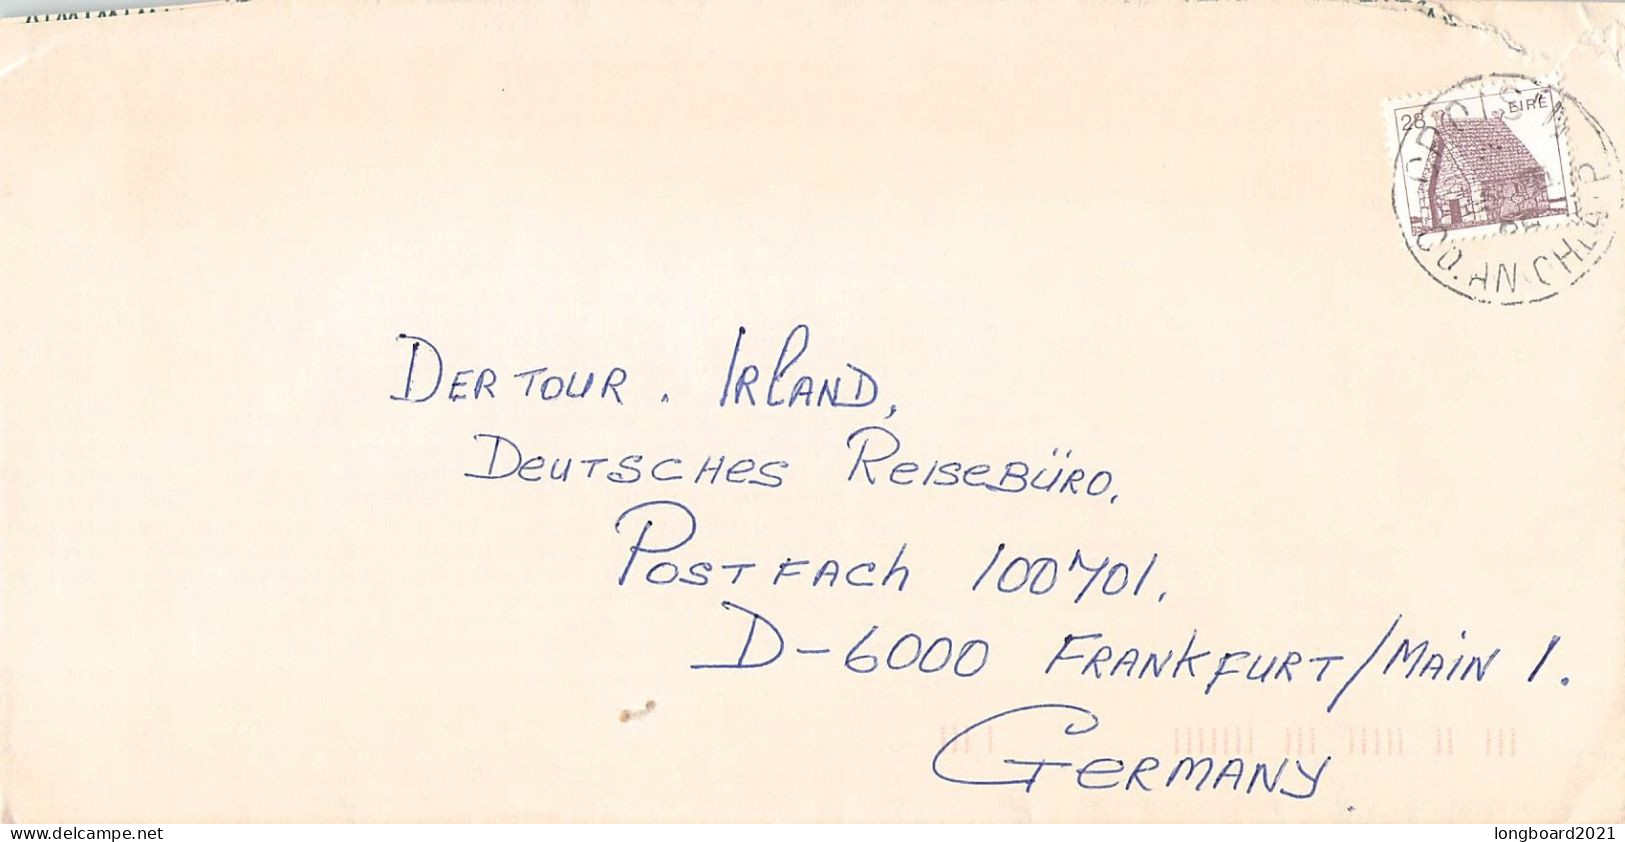 28 EIRE
DERTOUR. IRLAND,
DEUTSCHES REISEBÜRO.
POSTFACH 100701.
D-6000 FRANKFURT/MAIN 1.
GERMANY.
www.delcampe.net
longboard2021